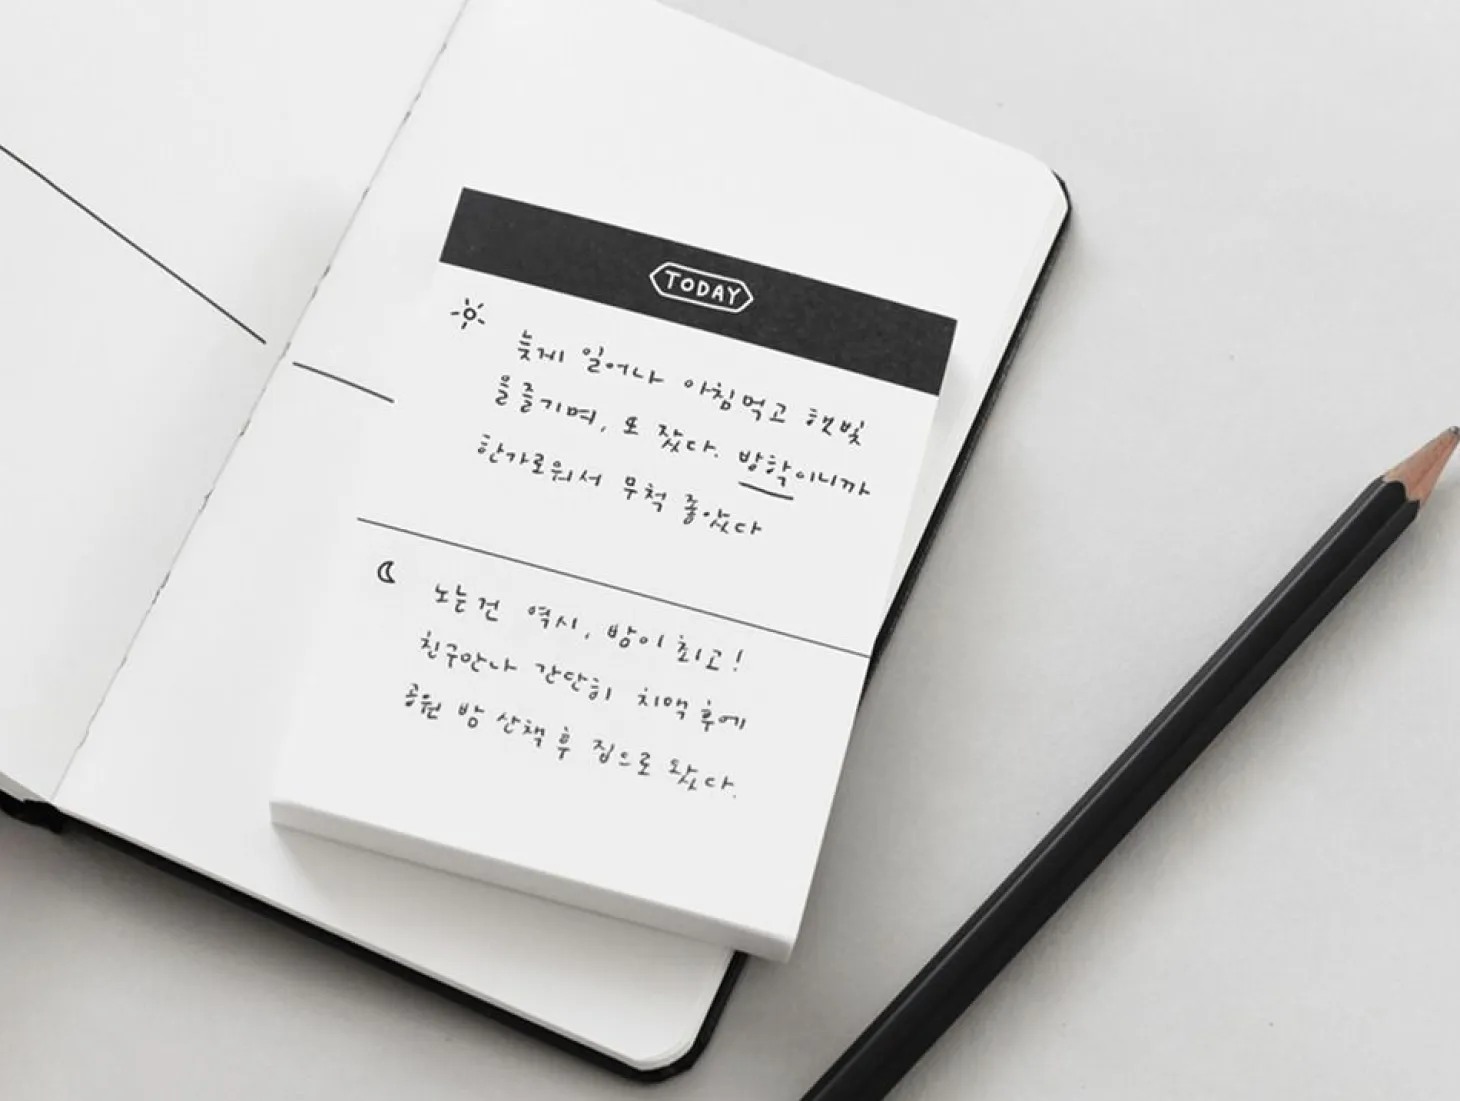 TODAY
늦게 일어나 아침먹고 햇빛
을 즐기며, 또 잤다. 방학이니까
한가로워서 무척 좋았다
노는건 역시, 밤이 최고!
친구만나 간단히 치맥 후에
공원 밤 산책 후 집으로 왔다.